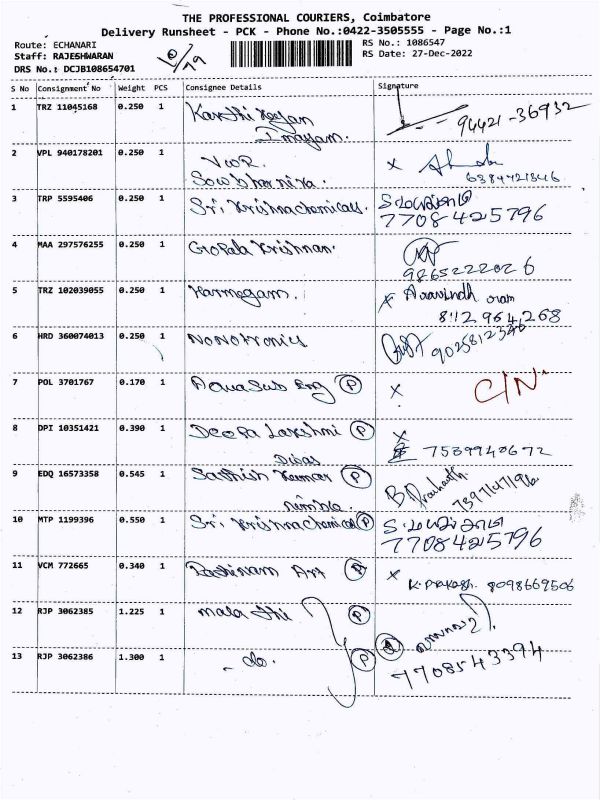 THE PROFESSIONAL COURIERS, Coimbatore
Delivery Runsheet - PCK - Phone No.:0422-3505555 - Page No.:1
Route: ECHANARI
RS No.: 1086547
Staff: RAJESHWARAN
RS Date: 27-Dec-2022
DRS No.: DCJB108654701
S No Consignment No Weight PCS Consignee Details Signature
1 TRZ 11045168 0.250 1 Karthikeyan 94421-36932
2 VPL 940178201 0.250 1
6384721346
3 TRP 5595406 0.250 1 Sri Krishna chemicals.
7708425796
4 MAA 297576255 0.250 1 Gopala Krishnan.
9865222026
5 TRZ 102039055 0.250 1 Karmegam. x Aravindh
8112964268
6 HRD 360074013 0.250 1 Nonotronics 9025812346
7 POL 3701767 0.170 1 AquaSub Eng P x C/N
8 DPI 10351421 0.390 1 Deepa Lakshmi P x
7539940672
9 EDQ 16573358 0.545 1 Sathish Kumar P B Prashanth
7397147196
10 MTP 1199396 0.550 1 Sri Krishna chemical P
7708425796
11 VCM 772665 0.340 1 Art P x K. Prakash. 8098669506
12 RJP 3062385 1.225 1 mala thi P
13 RJP 3062386 1.300 1 - do. P 7708543394